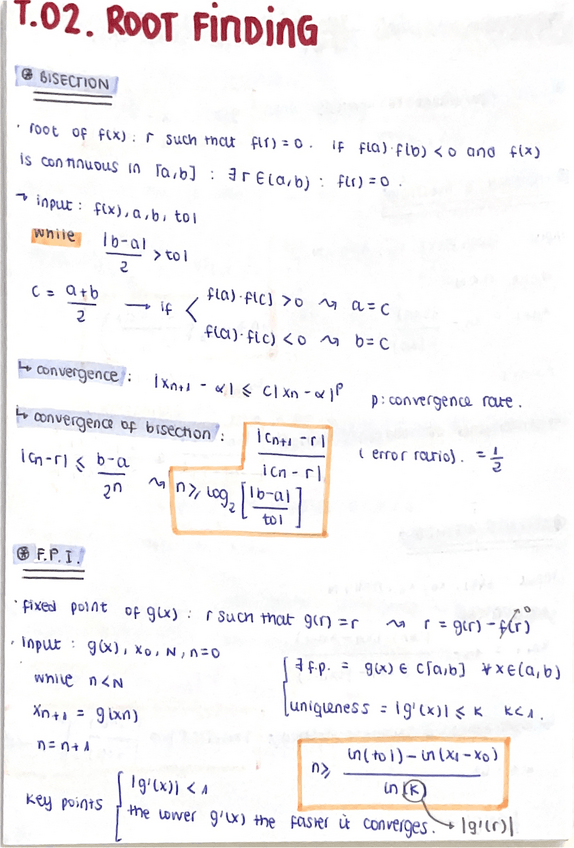 T.02. ROOT FINDING
⊛ BISECTION
· root of f(x): r such that f(r) = 0. if f(a)·f(b) < 0 and f(x)
is continuous in [a,b] : ∃ r ∈ (a,b) : f(r) = 0.
→ input: f(x), a, b, tol
while |b-a|/2 > tol
c = (a+b)/2 → if < f(a)·f(c) > 0 ⇝ a = c
f(a)·f(c) < 0 ⇝ b = c
↳ convergence: |xn+1 - α| ≤ c|xn - α|^p p: convergence rate.
↳ convergence of bisection: |cn+1 - r| / |cn - r| (error ratio). = 1/2
|cn-r| ≤ (b-a)/2^n ⇝ n ≥ log2 [|b-a|/tol]
⊛ F.P.I.
· fixed point of g(x): r such that g(r) = r ⇝ r = g(r) - f(r) → 0
· Input: g(x), x0, N, n=0
while n < N
xn+1 = g(xn)
n = n+1
∃ f.p. = g(x) ∈ C[a,b] ∀x ∈ (a,b)
uniqueness = |g'(x)| ≤ K K<1.
n ≥ (ln(tol) - ln(x1-x0)) / ln(K)
Key points { |g'(x)| < 1
the lower g'(x) the faster it converges. → |g'(r)|